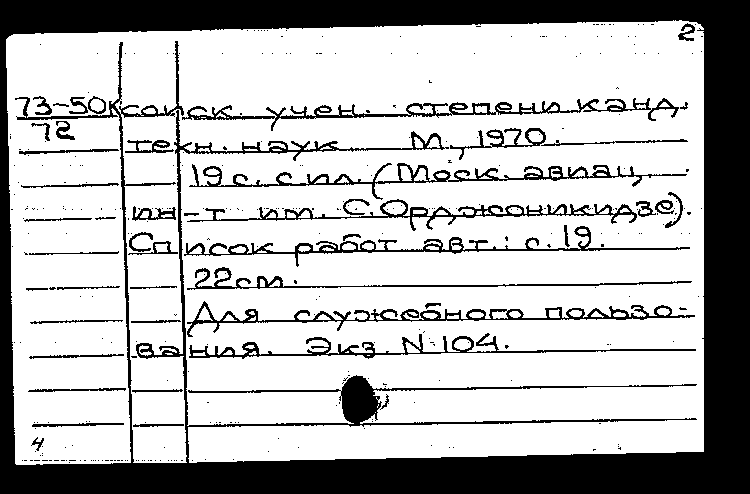 2
73-50к соиск. учен. степени канд.
72
техн. наук М., 1970.
19 с. с ил. (Моск. авиац.
ин-т им. С. Орджоникидзе).
Список работ авт.: с. 19.
22см.
Для служебного пользо-
вания. Экз. N 104.
4